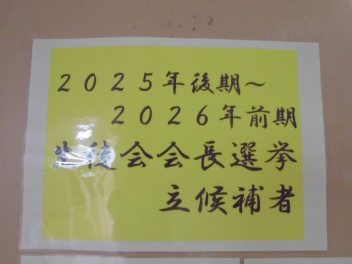 2025年後期～
2026年前期
生徒会会長選挙
立候補者